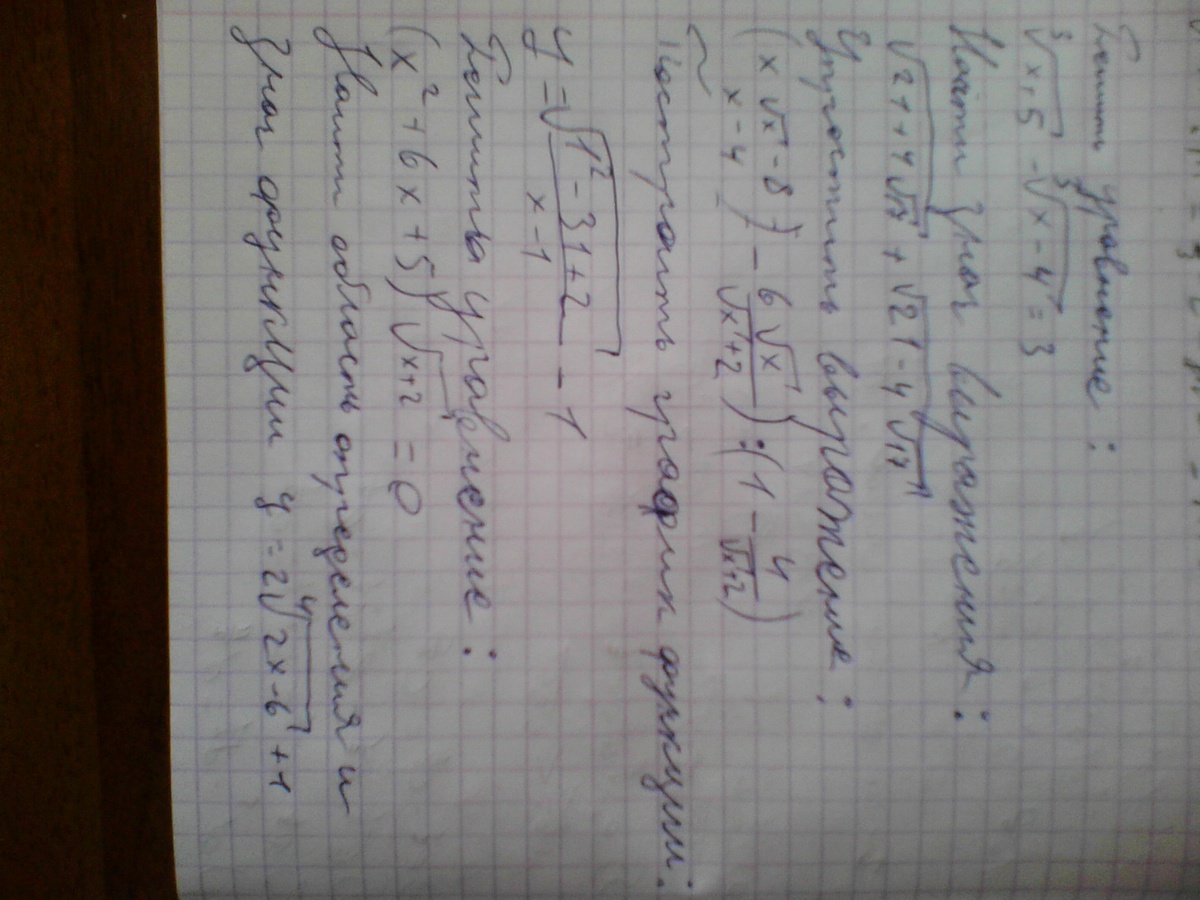 Решить уравнение:
∛x+5 - ∛x-4 = 3
Найти знач выражения:
√21+4√17 + √21-4√17
Упростить выражение:
(x√x - 8 / x-4 - 6√x / √x+2) : (1 - 4 / √x+2)
Построить график функции:
y = √1² - 31 + 2 / x-1 - 1
Решить уравнение:
(x² + 6x + 5)√x+2 = 0
Найти область определения и
знач функции y = 2∜2x-6 + 1